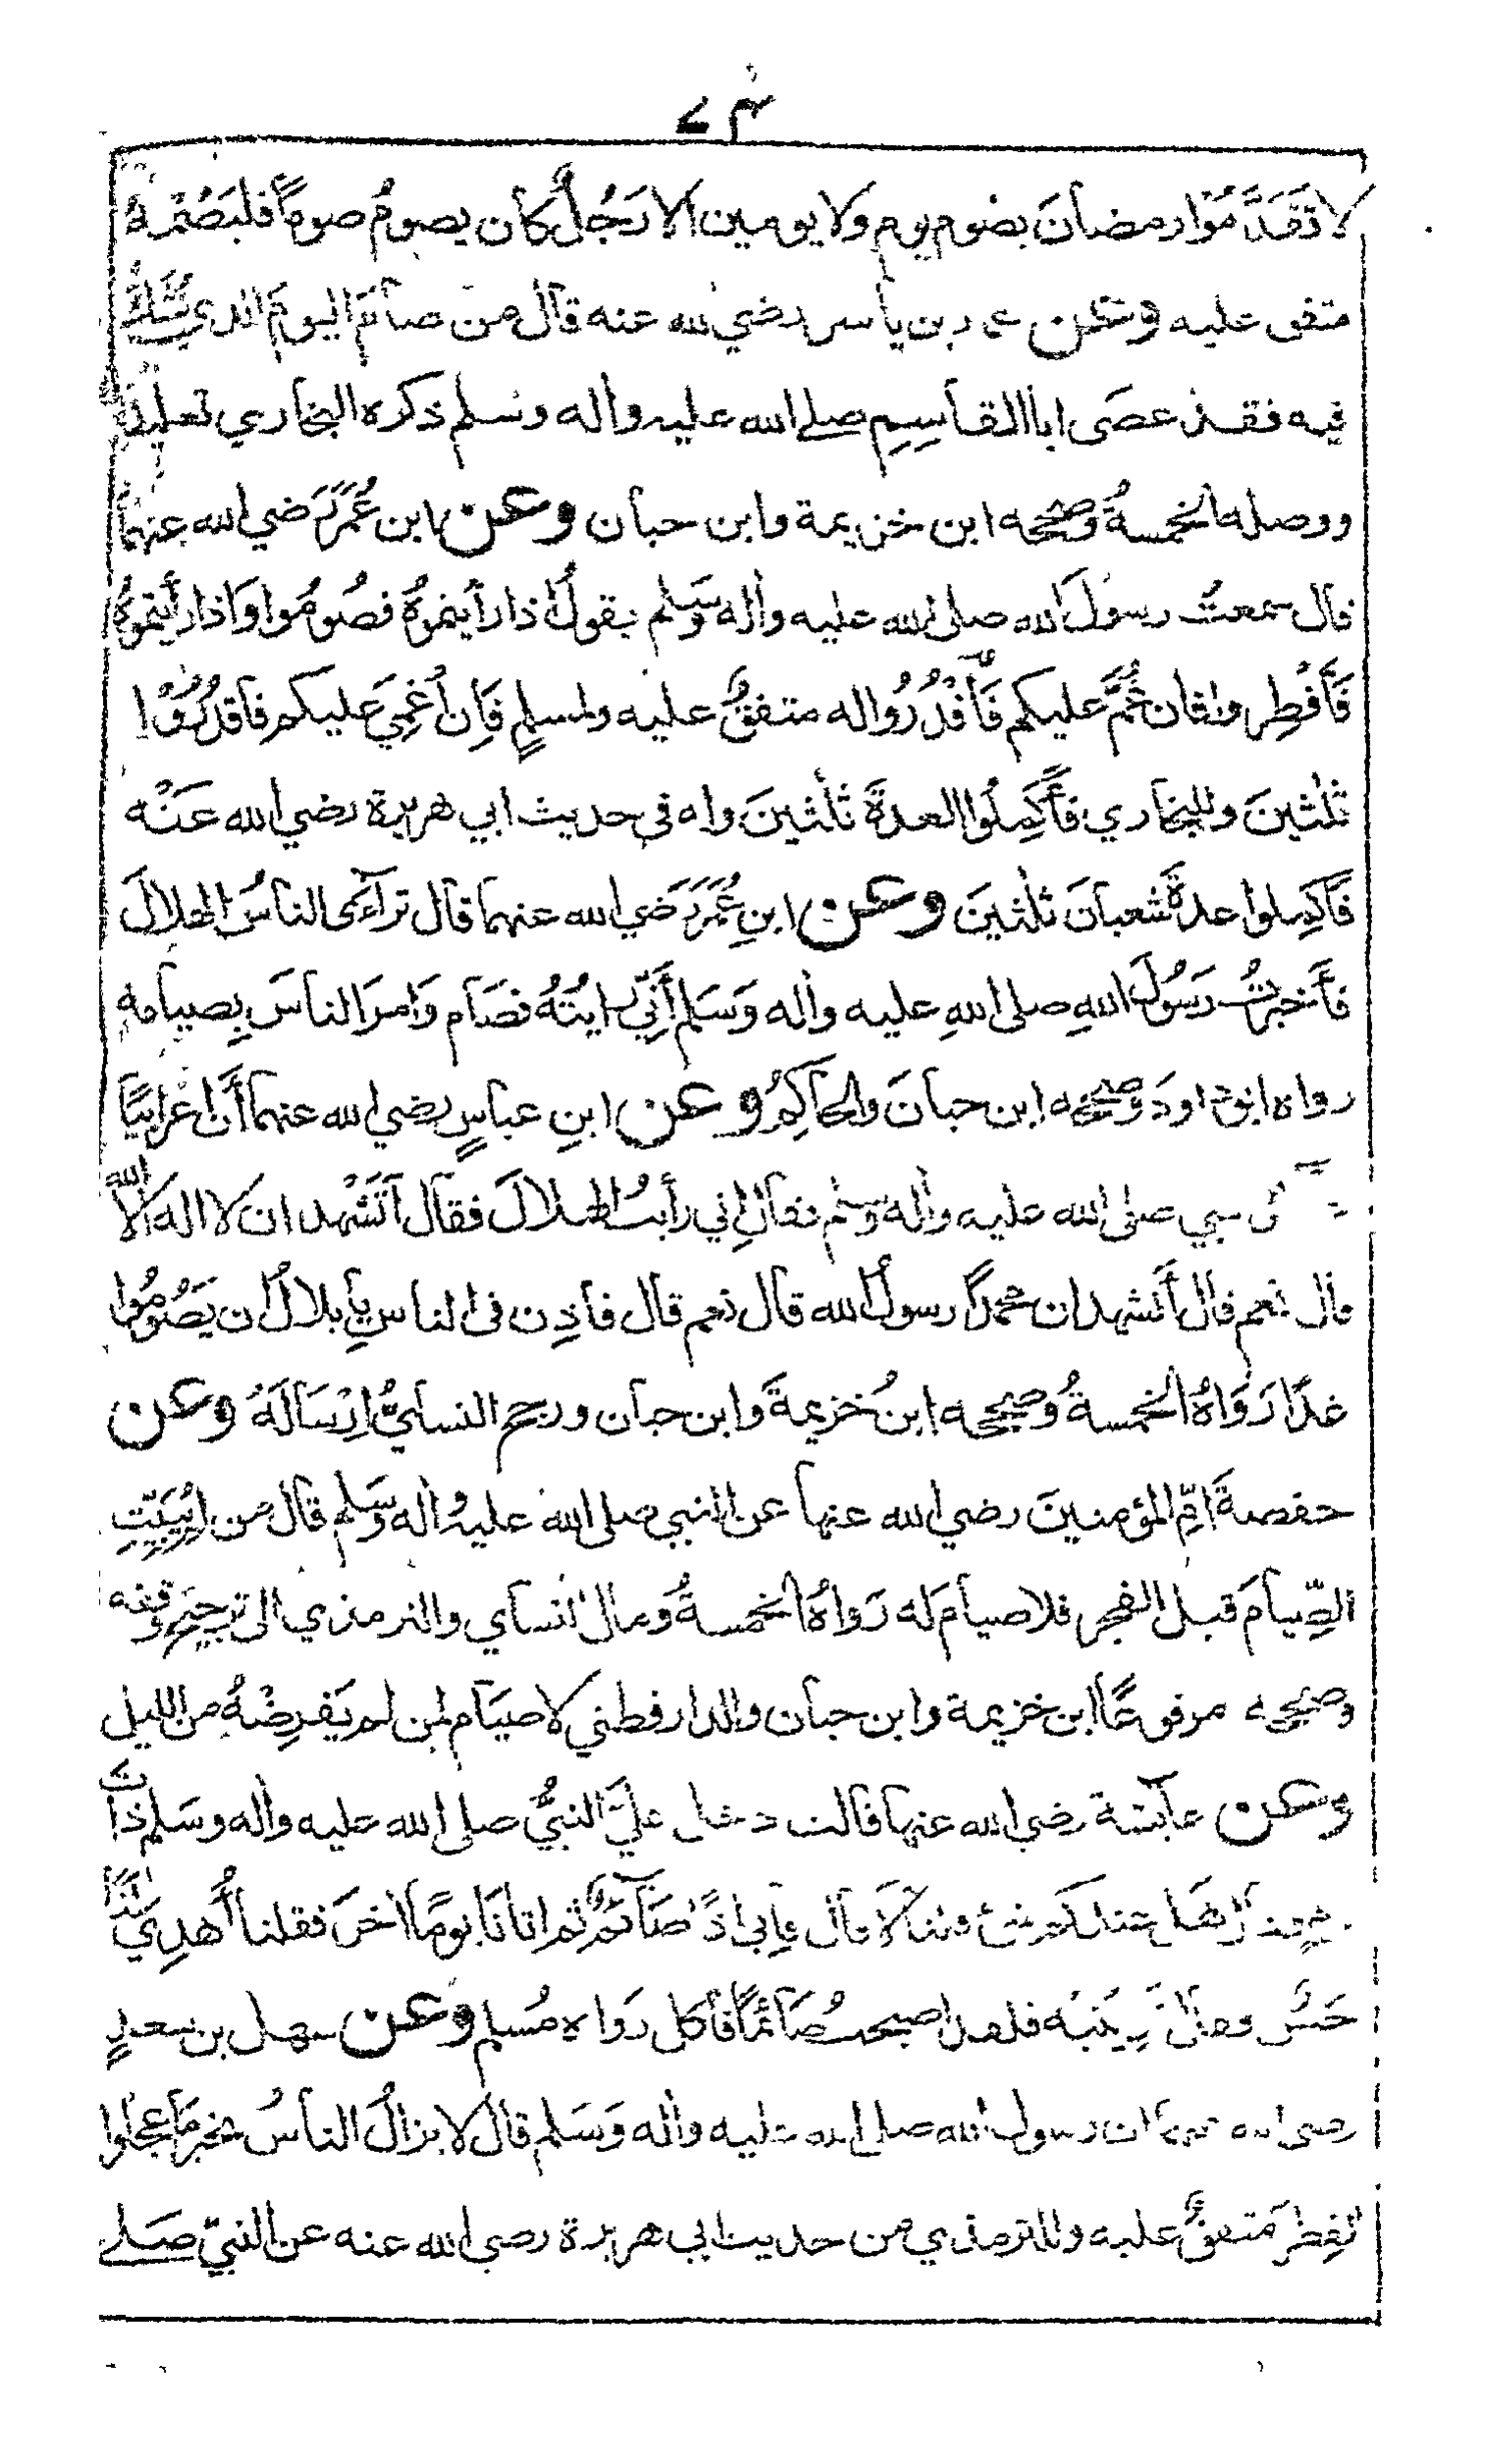 لا تَقَدَّمُوْا رمضانَ بصوم يوم ولا يومين الا رَجُلٌ كان يصومُ صوماً فليَصُمْهُ
متفق عليه وعن بن ياسر رضي الله عنه قال من صامَ اليومَ الذي يُشَكُّ
فيه فقد عصَى ابا القاسِمِ صلے الله عليه واٰله وسلم ذكره البخاري تعليقا
ووصله الخمسةُ وصححه ابن خزيمة وابن حبان وعن ابن عُمَرَ رَضي الله عنهما
قال سمعتُ رسولَ الله صلى الله عليه واٰله وَسَلم يقولُ اذا رأيتموهُ فصُومُوا وَاذا رأيتموهُ
فَأَفْطِروا فان غُمَّ عليكم فَأقْدُرُوا له متفقٌ عليه ولمسلمٍ فَاِن اُغْمِيَ عليكم فاقدُرُوْا
ثلٰثينَ وللبخاري فأَكْمِلُوا العدةَ ثلٰثينَ وله في حديث ابي هريرة رضي الله عَنْه
فَأَكمِلوا عدةَ شعبانَ ثلٰثينَ وعن ابنِ عُمَرَ رَضي الله عنهما قال تراءَى الناسُ الهلالَ
فأَخبرتُ رَسُولَ اللهِ صلى اللهِ عليه واٰله وَسَلم أَنِّي رايتُهُ فصَام وَامرَ الناسَ بِصيامه
رواه ابو داودَ وصححه ابن حبانَ والحاكِمُ وعن ابنِ عباسٍ رضي الله عنهما أَنَّ اعرابيًّا
صلى الله عليه واٰله وَسَلم فقال اِني رأيتُ الهلالَ فقال اَتَشْهد ان لا اله اِلَّا الله
قال نعم قال أَتشهد ان محمدًا رسولُ الله قال نعم قال فأذِن في الناسِ يا بلالُ ان يَصُوْمُوا
غدًا رَوَاهُ الخمسةُ وصححه ابنُ خزيمةَ وابن حبان ورجح النسائيُّ اِرْسَالَهُ وعن
حفصةَ اُمِّ المؤمنينَ رضي الله عنها عن النبي صلى الله عليه واٰله وَسَلم قال من لم يُبَيِّتِ
الصِّيامَ قبل الفجر فلا صيام له رَواهُ الخمسةُ ومال النسائي والترمذي الى ترجيح وقفه
وصححه مرفوعًا ابن خزيمة وابن حبان والدارقطني لا صيَام لمن لم يَفرِضْهُ من الليل
وعن عائشة رضي الله عنها قالت دخل عليَّ النبيُّ صلى الله عليه واٰله وسَلم ذات
هل عندكم شئ قلنا لا قال فاِني اذًا صَائمٌ ثم اتانا يومًا اٰخرَ فقلنا اُهدِيَ لنا
حَيسٌ فقال فلقد اصبحتُ صَائمًا فأكل رَواه مُسلم وعن سهل بن سعدٍ
رضي الله ان رسول الله صلى الله عليه واٰله وَسَلم قال لا يزالُ الناسُ بخير مَا عجلوا
الفِطرَ متفقٌ عليه وللترمذي من حديث ابي هريرة رضي الله عنه عن النبيّ صَلے